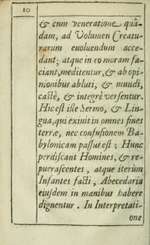 10
& cum veneratione quâ-
dam, ad Volumen Creatu-
rarum evoluendum acce-
dant; atque in eo moram fa-
ciant, meditentur, & ab opi-
nionibus abluti, & mundi,
castè, & integrè versentur.
Hic est ille Sermo, & Lin-
gua, qui exivit in omnes fines
terræ, nec confusionem Ba-
bylonicam passus est; Hunc
perdiscant Homines, & re-
puerascentes, atque iterum
Infantes facti, Abecedaria
eiusdem in manibus habere
dignentur. In Interpretati-
one